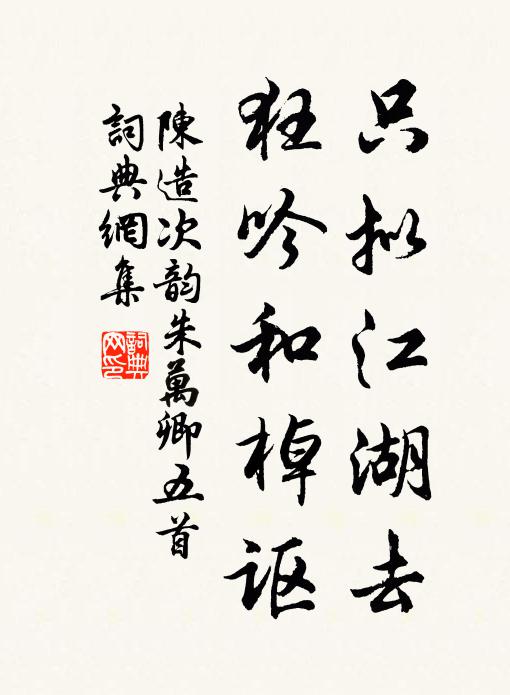 只拟江湖去
狂吟和棹讴
陳造次韵朱萬卿五首
詞典網集
詞典網印